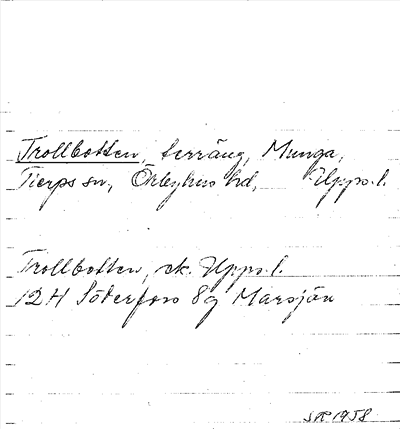 Trollbotten, terräng, Munga,
Tierps sn, Örbyhus hd, Upps. l.
Trollbotten, ek. Upps. l.
12H Söderfors 8g Marsjön
1958